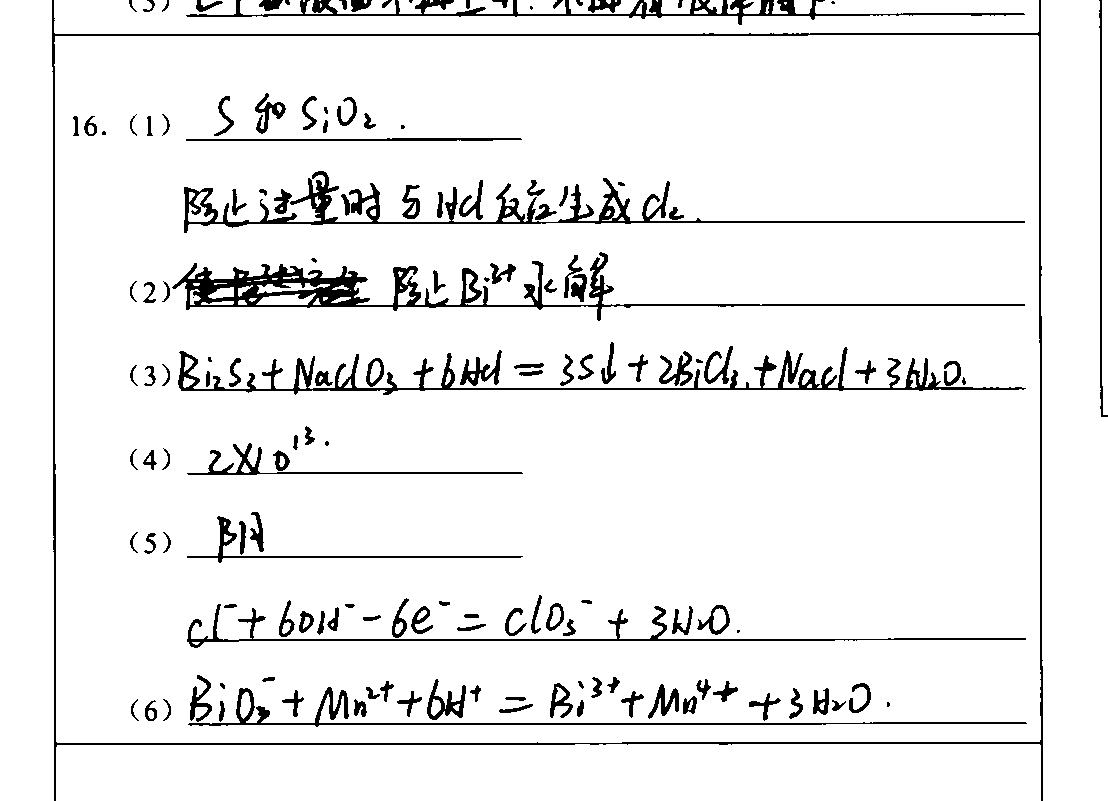 (3)
16. (1) S和SiO₂.
防止过量时与HCl反应生成Cl₂.
(2) 防止Bi³⁺水解
(3) Bi₂S₃+NaClO₃+6HCl=3S↓+2BiCl₃+NaCl+3H₂O.
(4) 2×10¹³.
(5) 阴
Cl⁻+6OH⁻-6e⁻=ClO₃⁻+3H₂O.
(6) BiO₃⁻+Mn²⁺+6H⁺=Bi³⁺+Mn⁴⁺+3H₂O.